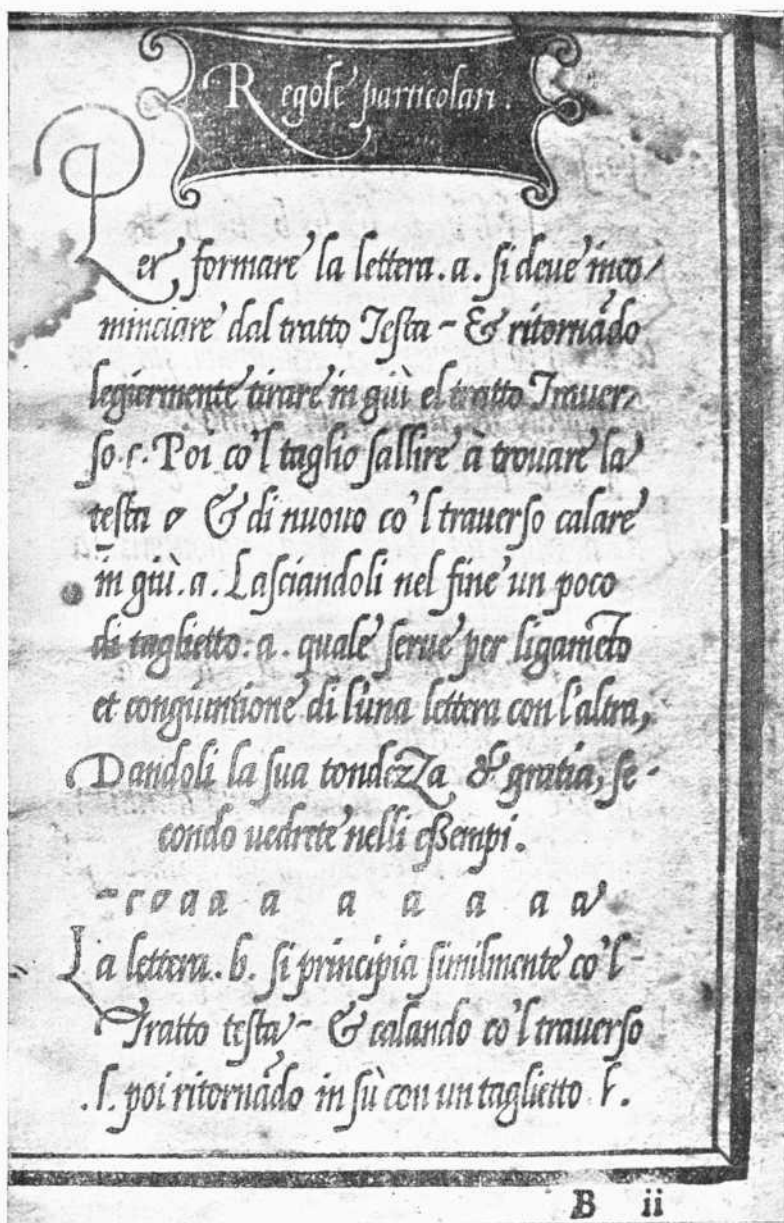 Regole particolari.
Per formare la lettera. a. si deue inco-
minciare dal tratto Testa - & ritornãdo
legiermente tirare in giù el tratto Trauer-
so. c. Poi co'l taglio sallire à trouare la
testa & di nuouo co'l trauerso calare
in giù. a. Lasciandoli nel fine un poco
di taglietto. a. quale serue per ligamẽto
et congiuntione di luna lettera con l'altra,
Dandoli la sua tondezza & gratia, se-
condo uedrete nelli essempi.
- c a a a a a a a a
La lettera. b. si principia similmente co'l
Tratto testa - & calando co'l trauerso
.l. poi ritornãdo in sù con un taglietto
B ii